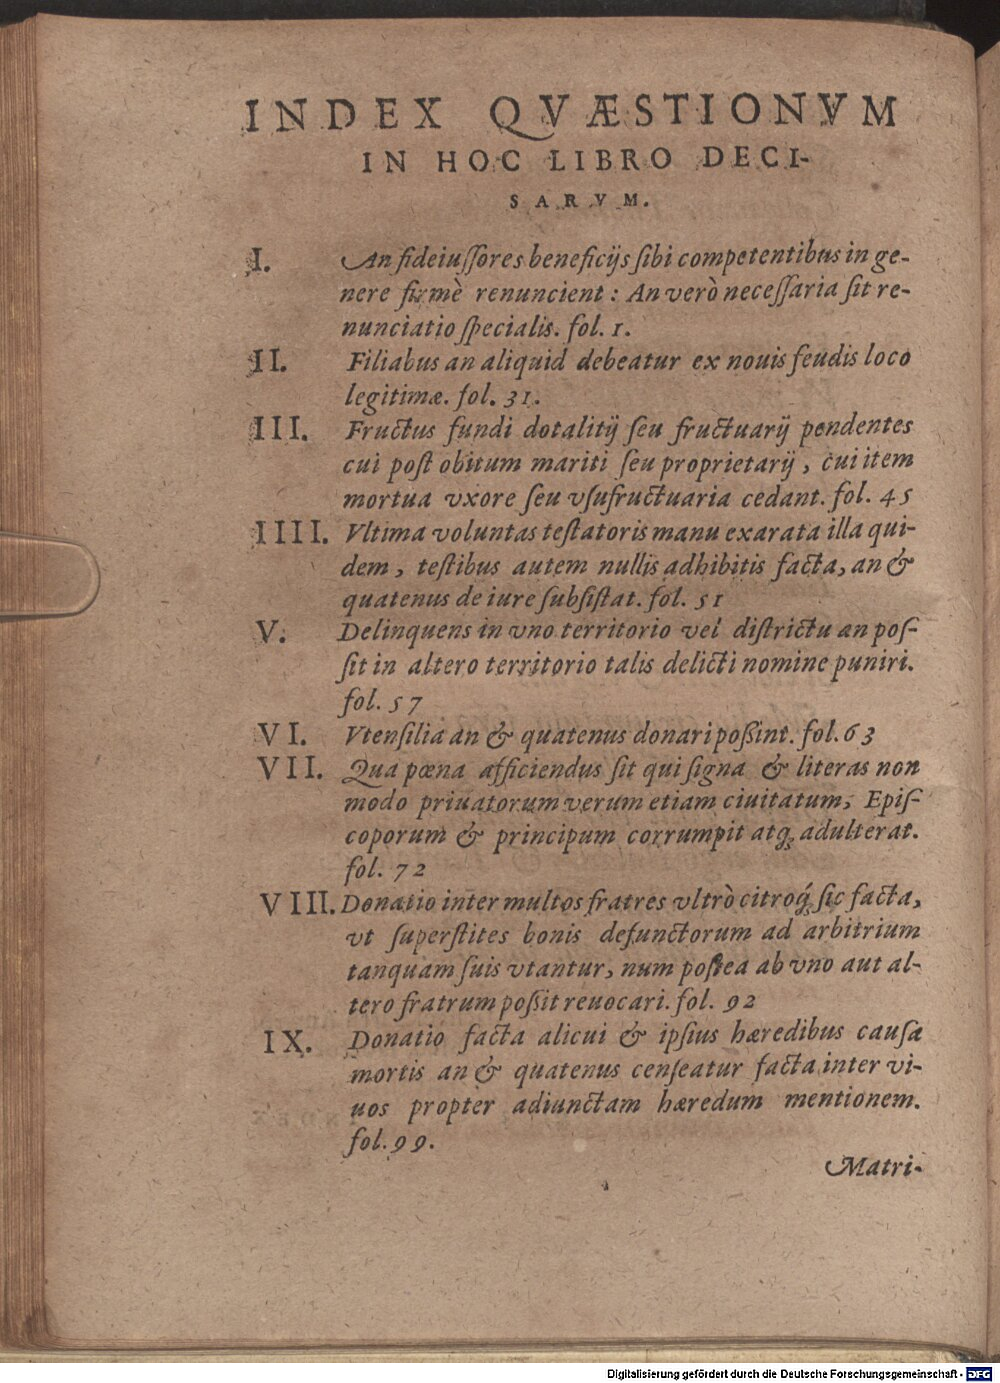 INDEX QVÆSTIONVM
IN HOC LIBRO DECI-
SARVM.
I. An fideiuſſores beneficijs ſibi competentibus in ge-
nere firmè renuncient: An verò neceſſaria ſit re-
nunciatio ſpecialis. fol. 1.
II. Filiabus an aliquid debeatur ex nouis feudis loco
legitimæ. fol. 31.
III. Fructus fundi dotalitij ſeu fructuarij pendentes
cui poſt obitum mariti ſeu proprietarij, cui item
mortua vxore ſeu vſufructuaria cedant. fol. 45
IIII. Vltima voluntas teſtatoris manu exarata illa qui-
dem, teſtibus autem nullis adhibitis facta, an &
quatenus de iure ſubſiſtat. fol. 51
V. Delinquens in vno territorio vel diſtrictu an poſ-
ſit in altero territorio talis delicti nomine puniri.
fol. 57
VI. Vtenſilia an & quatenus donari poßint. fol. 63
VII. Qua pœna afficiendus ſit qui ſigna & literas non
modo priuatorum verum etiam ciuitatum, Epiſ-
coporum & principum corrumpit atq; adulterat.
fol. 72
VIII. Donatio inter multos fratres vltrò citroq́; ſic facta,
vt ſuperſtites bonis defunctorum ad arbitrium
tanquam ſuis vtantur, num poſtea ab vno aut al-
tero fratrum poßit reuocari. fol. 92
IX. Donatio facta alicui & ipſius hæredibus cauſa
mortis an & quatenus cenſeatur facta inter vi-
uos propter adiunctam hæredum mentionem.
fol. 99.
Matri-
Digitalisierung gefördert durch die Deutsche Forschungsgemeinschaft - DFG